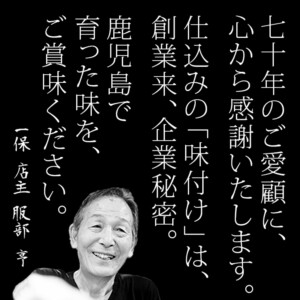 七十年のご愛顧に、
心から感謝いたします。
仕込みの「味付け」は、
創業来、企業秘密。
鹿児島で
育った味を、
ご賞味ください。
一保 店主 服部 亨